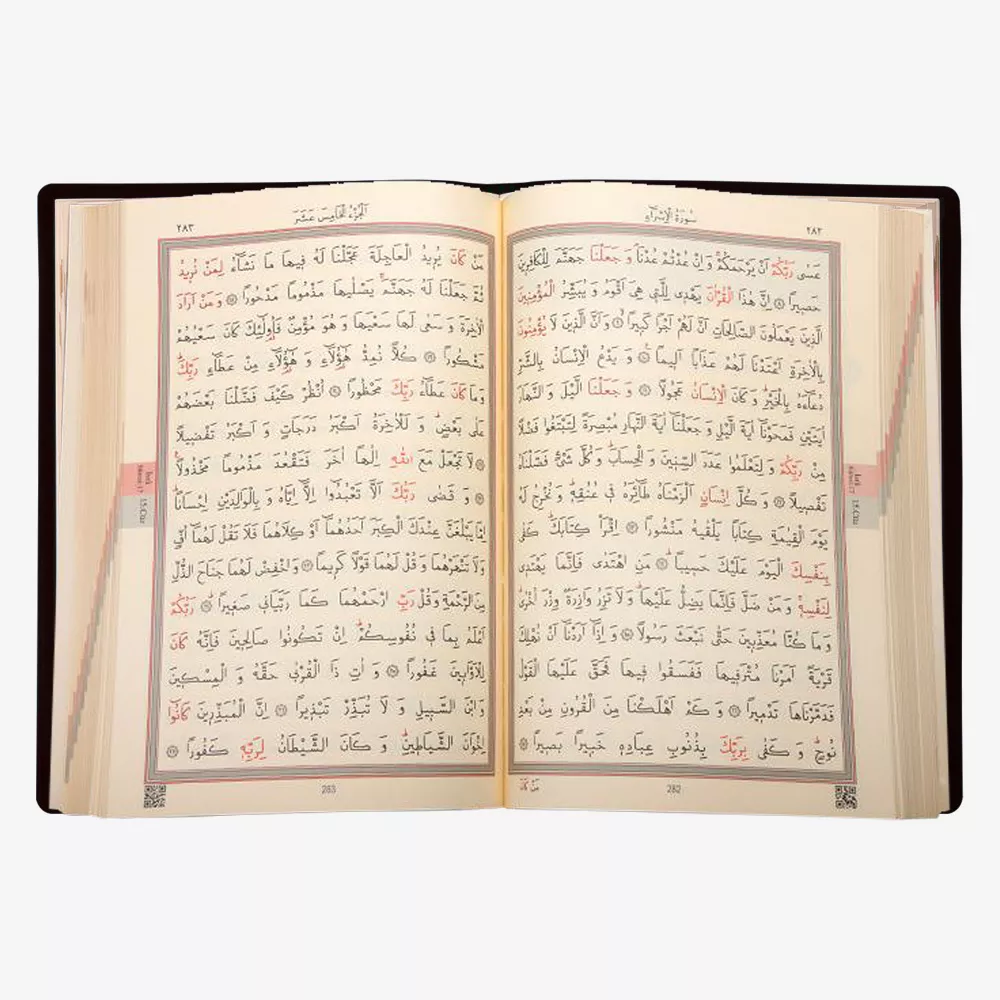 سُورَةُ الْاِسْرَاءِ ٢٨٢
عَسٰى رَبُّكُمْ اَنْ يَرْحَمَكُمْ وَاِنْ عُدْتُمْ عُدْنَا وَجَعَلْنَا جَهَنَّمَ لِلْكَافِرِينَ
حَصِيرًا ﴿٨﴾ اِنَّ هٰذَا الْقُرْاٰنَ يَهْدِى لِلَّتِى هِىَ اَقْوَمُ وَيُبَشِّرُ الْمُؤْمِنِينَ
الَّذِينَ يَعْمَلُونَ الصَّالِحَاتِ اَنَّ لَهُمْ اَجْرًا كَبِيرًا ﴿٩﴾ وَاَنَّ الَّذِينَ لَا يُؤْمِنُونَ
بِالْاٰخِرَةِ اَعْتَدْنَا لَهُمْ عَذَابًا اَلِيمًا ﴿١٠﴾ وَيَدْعُ الْاِنْسَانُ بِالشَّرِّ
دُعَٓاءَهُ بِالْخَيْرِ وَكَانَ الْاِنْسَانُ عَجُولًا ﴿١١﴾ وَجَعَلْنَا الَّيْلَ وَالنَّهَارَ
اٰيَتَيْنِ فَمَحَوْنَٓا اٰيَةَ الَّيْلِ وَجَعَلْنَٓا اٰيَةَ النَّهَارِ مُبْصِرَةً لِتَبْتَغُوا فَضْلًا
مِنْ رَبِّكُمْ وَلِتَعْلَمُوا عَدَدَ السِّنِينَ وَالْحِسَابَ وَكُلَّ شَىْءٍ فَصَّلْنَاهُ
تَفْصِيلًا ﴿١٢﴾ وَكُلَّ اِنْسَانٍ اَلْزَمْنَاهُ طَٓائِرَهُ فِى عُنُقِهِ وَنُخْرِجُ لَهُ
يَوْمَ الْقِيٰمَةِ كِتَابًا يَلْقٰيهُ مَنْشُورًا ﴿١٣﴾ اِقْرَأْ كِتَابَكَ كَفٰى
بِنَفْسِكَ الْيَوْمَ عَلَيْكَ حَسِيبًا ﴿١٤﴾ مَنِ اهْتَدٰى فَاِنَّمَا يَهْتَدِى
لِنَفْسِهِ وَمَنْ ضَلَّ فَاِنَّمَا يَضِلُّ عَلَيْهَا وَلَا تَزِرُ وَازِرَةٌ وِزْرَ اُخْرٰى
وَمَا كُنَّا مُعَذِّبِينَ حَتّٰى نَبْعَثَ رَسُولًا ﴿١٥﴾ وَاِذَٓا اَرَدْنَٓا اَنْ نُهْلِكَ
قَرْيَةً اَمَرْنَا مُتْرَفِيهَا فَفَسَقُوا فِيهَا فَحَقَّ عَلَيْهَا الْقَوْلُ
فَدَمَّرْنَاهَا تَدْمِيرًا ﴿١٦﴾ وَكَمْ اَهْلَكْنَا مِنَ الْقُرُونِ مِنْ بَعْدِ
نُوحٍ وَكَفٰى بِرَبِّكَ بِذُنُوبِ عِبَادِهِ خَبِيرًا بَصِيرًا ﴿١٧﴾
مَنْ كَانَ
282
15.Cüz
اَلْجُزْءُ الْخَامِسَ عَشَرَ ٢٨٣
مَنْ كَانَ يُرِيدُ الْعَاجِلَةَ عَجَّلْنَا لَهُ فِيهَا مَا نَشَٓاءُ لِمَنْ نُرِيدُ
ثُمَّ جَعَلْنَا لَهُ جَهَنَّمَ يَصْلٰيهَا مَذْمُومًا مَدْحُورًا ﴿١٨﴾ وَمَنْ اَرَادَ
الْاٰخِرَةَ وَسَعٰى لَهَا سَعْيَهَا وَهُوَ مُؤْمِنٌ فَاُولٰٓئِكَ كَانَ سَعْيُهُمْ
مَشْكُورًا ﴿١٩﴾ كُلًّا نُمِدُّ هٰٓؤُلَٓاءِ وَهٰٓؤُلَٓاءِ مِنْ عَطَٓاءِ رَبِّكَ
وَمَا كَانَ عَطَٓاءُ رَبِّكَ مَحْظُورًا ﴿٢٠﴾ اُنْظُرْ كَيْفَ فَضَّلْنَا بَعْضَهُمْ
عَلٰى بَعْضٍ وَلَلْاٰخِرَةُ اَكْبَرُ دَرَجَاتٍ وَاَكْبَرُ تَفْضِيلًا
﴿٢١﴾ لَا تَجْعَلْ مَعَ اللّٰهِ اِلٰهًا اٰخَرَ فَتَقْعُدَ مَذْمُومًا مَخْذُولًا
﴿٢٢﴾ وَقَضٰى رَبُّكَ اَلَّا تَعْبُدُٓوا اِلَّٓا اِيَّاهُ وَبِالْوَالِدَيْنِ اِحْسَانًا
اِمَّا يَبْلُغَنَّ عِنْدَكَ الْكِبَرَ اَحَدُهُمَٓا اَوْ كِلَاهُمَا فَلَا تَقُلْ لَهُمَٓا اُفٍّ
وَلَا تَنْهَرْهُمَا وَقُلْ لَهُمَا قَوْلًا كَرِيمًا ﴿٢٣﴾ وَاخْفِضْ لَهُمَا جَنَاحَ الذُّلِّ
مِنَ الرَّحْمَةِ وَقُلْ رَبِّ ارْحَمْهُمَا كَمَا رَبَّيَانِى صَغِيرًا ﴿٢٤﴾ رَبُّكُمْ
اَعْلَمُ بِمَا فِى نُفُوسِكُمْ اِنْ تَكُونُوا صَالِحِينَ فَاِنَّهُ كَانَ
لِلْاَوَّابِينَ غَفُورًا ﴿٢٥﴾ وَاٰتِ ذَا الْقُرْبٰى حَقَّهُ وَالْمِسْكِينَ
وَابْنَ السَّبِيلِ وَلَا تُبَذِّرْ تَبْذِيرًا ﴿٢٦﴾ اِنَّ الْمُبَذِّرِينَ كَانُٓوا
اِخْوَانَ الشَّيَاطِينِ وَكَانَ الشَّيْطَانُ لِرَبِّهِ كَفُورًا ﴿٢٧﴾
283
15.Cüz